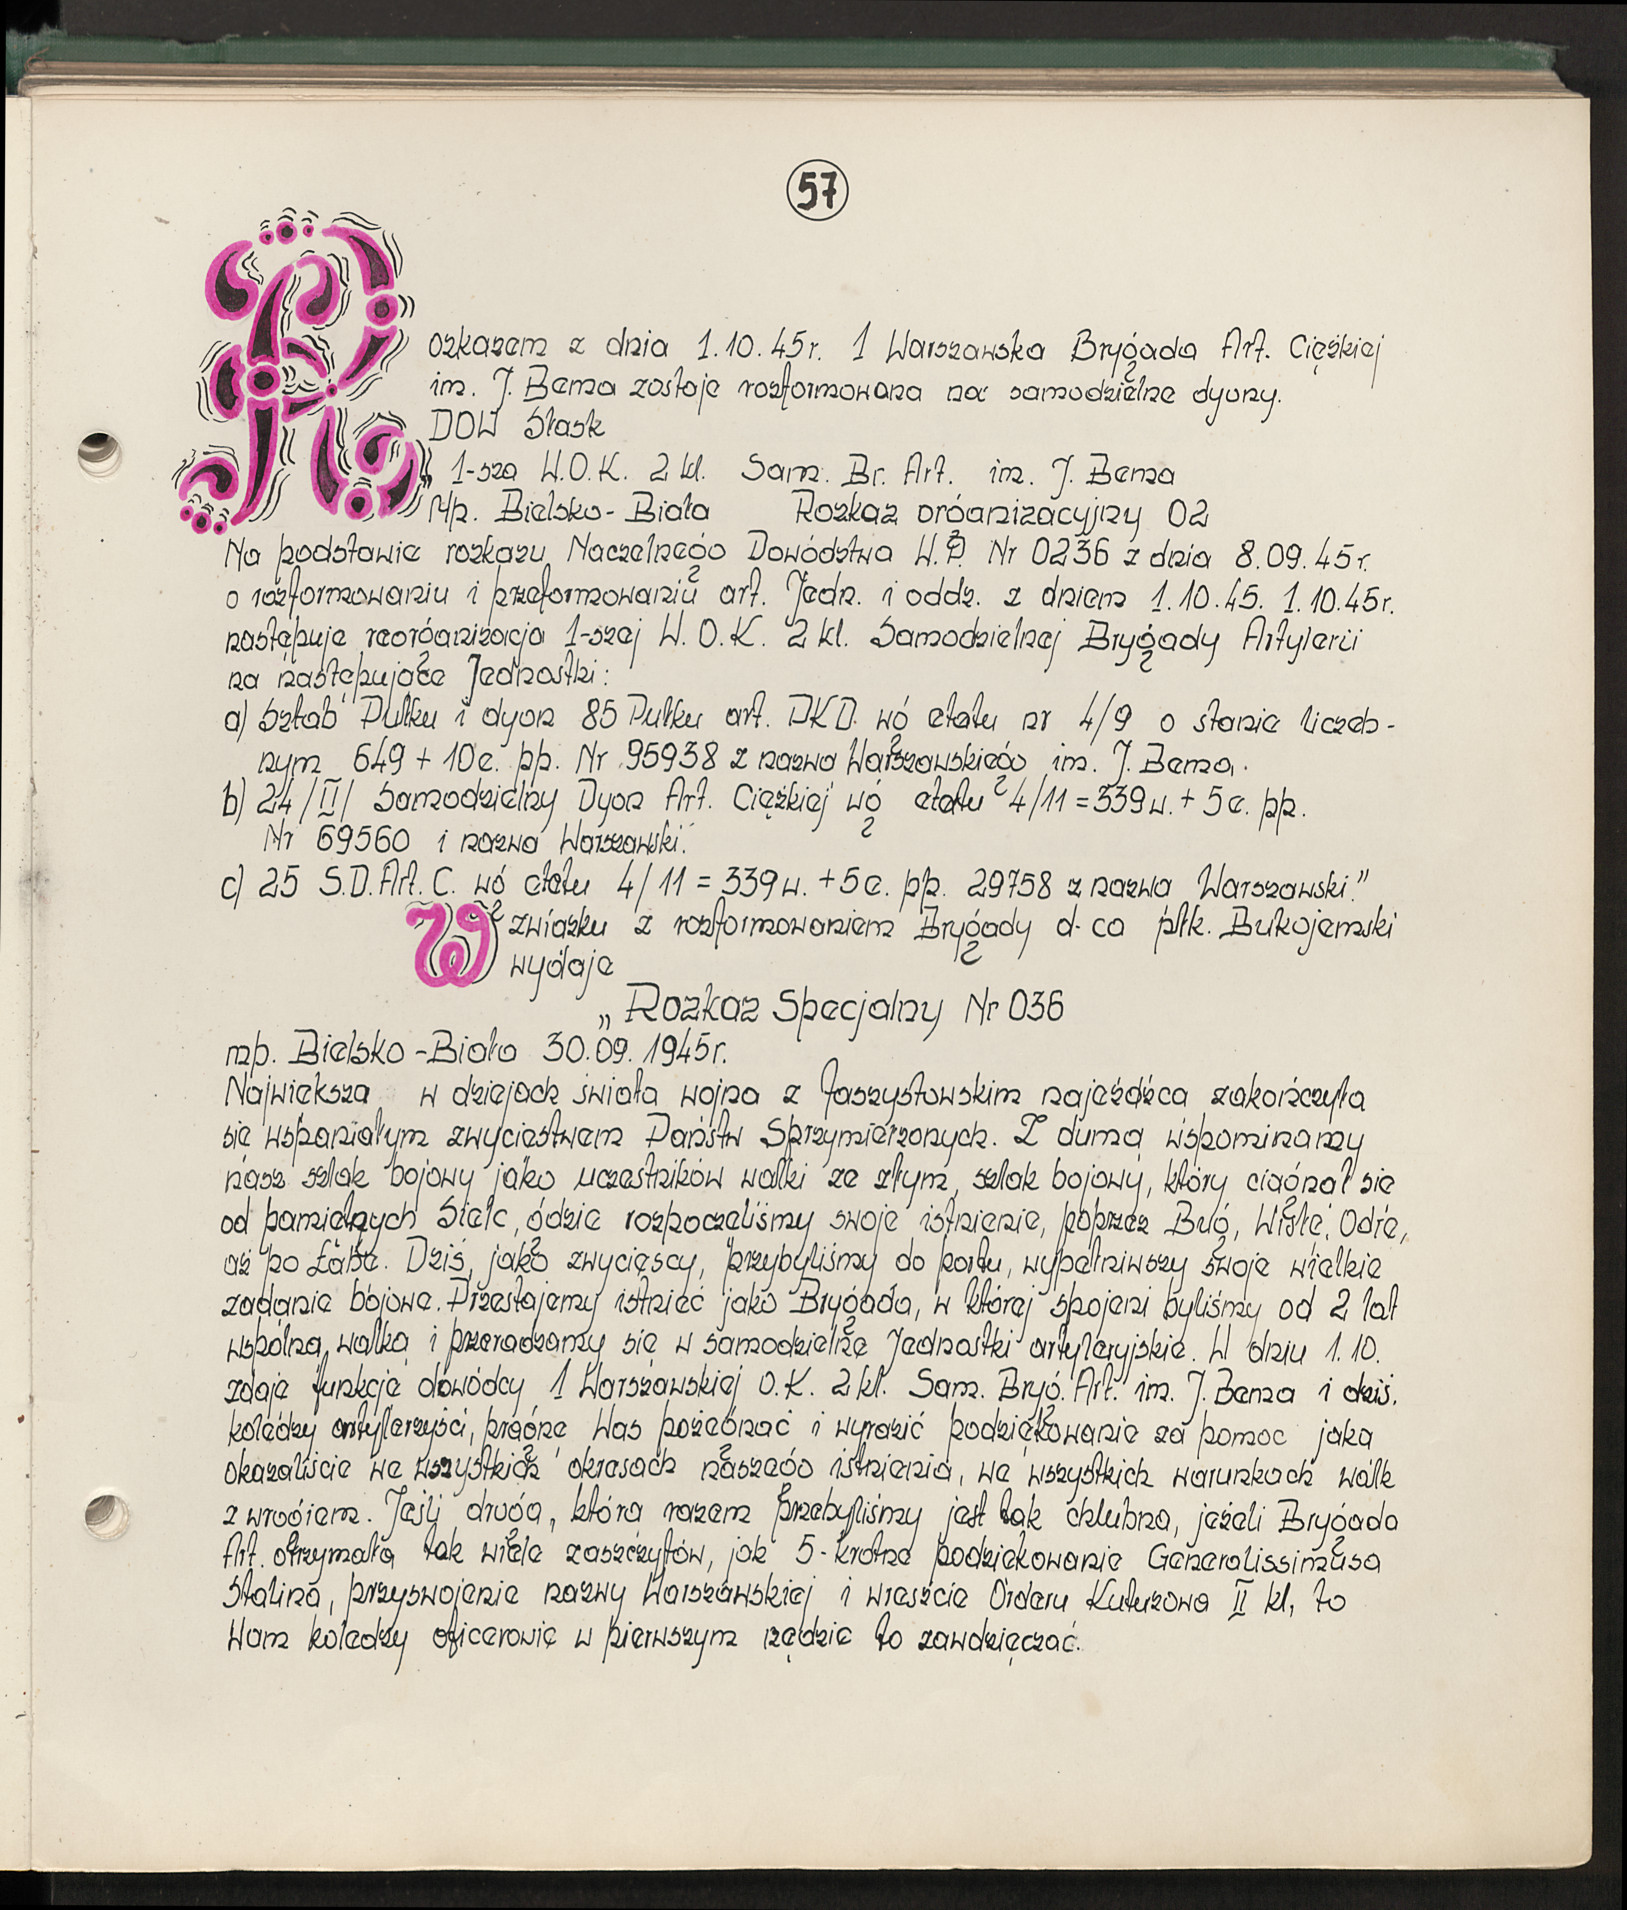 57
Rozkazem z dnia 1.10.45r. 1 Warszawska Brygada Art. Ciężkiej
im. J. Bema zostaje rozformowana na samodzielne dyony.
DOW Śląsk
„1-sza W.O.K. 2 kl. Sam. Br. Art. im. J. Bema
M/p. Bielsko-Biała Rozkaz organizacyjny 02
Na podstawie rozkazu Naczelnego Dowództwa W.P. Nr 0236 z dnia 8.09.45r.
o rozformowaniu i przeformowaniu art. Jedn. i oddz. z dniem 1.10.45. 1.10.45r.
następuje reorganizacja 1-szej W.O.K. 2 kl. Samodzielnej Brygady Artylerii
na następujące Jednostki:
a) Sztab Pułku i dyon 85 Pułku art. DKD. wg etatu nr 4/9 o stanie liczeb-
nym 649 + 10c. pp. Nr 95938 z nazwą Warszawskiego im. J. Bema.
b) 24/II/ Samodzielny Dyon Art. Ciężkiej wg etatu 4/11 = 339w. + 5c. pp.
Nr 69560 i nazwą Warszawski.
c) 25 S.D.Art. C. wg etatu 4/11 = 339w. +5c. pp. 29758 z nazwą Warszawski."
W związku z rozformowaniem Brygady d-ca płk. Bukojemski
wydaje
„Rozkaz Specjalny Nr 036
mp. Bielsko-Biała 30.09.1945r.
Największa w dziejach świata wojna z faszystowskim najeźdźcą zakończyła
się wspaniałym zwycięstwem Państw Sprzymierzonych. Z dumą wspominamy
nasz szlak bojowy jako uczestników walki ze złym, szlak bojowy, który ciągnął się
od pamiętnych Sielc, gdzie rozpoczęliśmy swoje istnienie, poprzez Bug, Wisłę, Odrę,
aż po Łabę. Dziś, jako zwycięscy, przybyliśmy do portu, wypełniwszy swoje wielkie
zadanie bojowe. Przestajemy istnieć jako Brygada, w której spojeni byliśmy od 2 lat
wspólną walką i przeradzamy się w samodzielne Jednostki artyleryjskie. W dniu 1.10.
zdaję funkcję dowódcy 1 Warszawskiej O.K. 2 kl. Sam. Bryg. Art. im. J. Bema i dziś,
koledzy artylerzyści, pragnę Was pożegnać i wyrazić podziękowanie za pomoc jaką
okazaliście we wszystkich okresach naszego istnienia, we wszystkich warunkach walk
z wrogiem. Jeśli droga, którą razem przebyliśmy jest tak chlubna, jeżeli Brygada
Art. otrzymała tak wiele zaszczytów, jak 5-krotne podziękowanie Generalissimusa
Stalina, przyswojenie nazwy Warszawskiej i wreszcie Orderu Kutuzowa II kl, to
Wam koledzy oficerowie w pierwszym rzędzie to zawdzięczać.